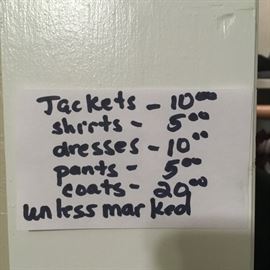 Jackets - 10 00
shirts - 5 00
dresses - 10 00
pants - 5 00
coats - 20 00
unless marked